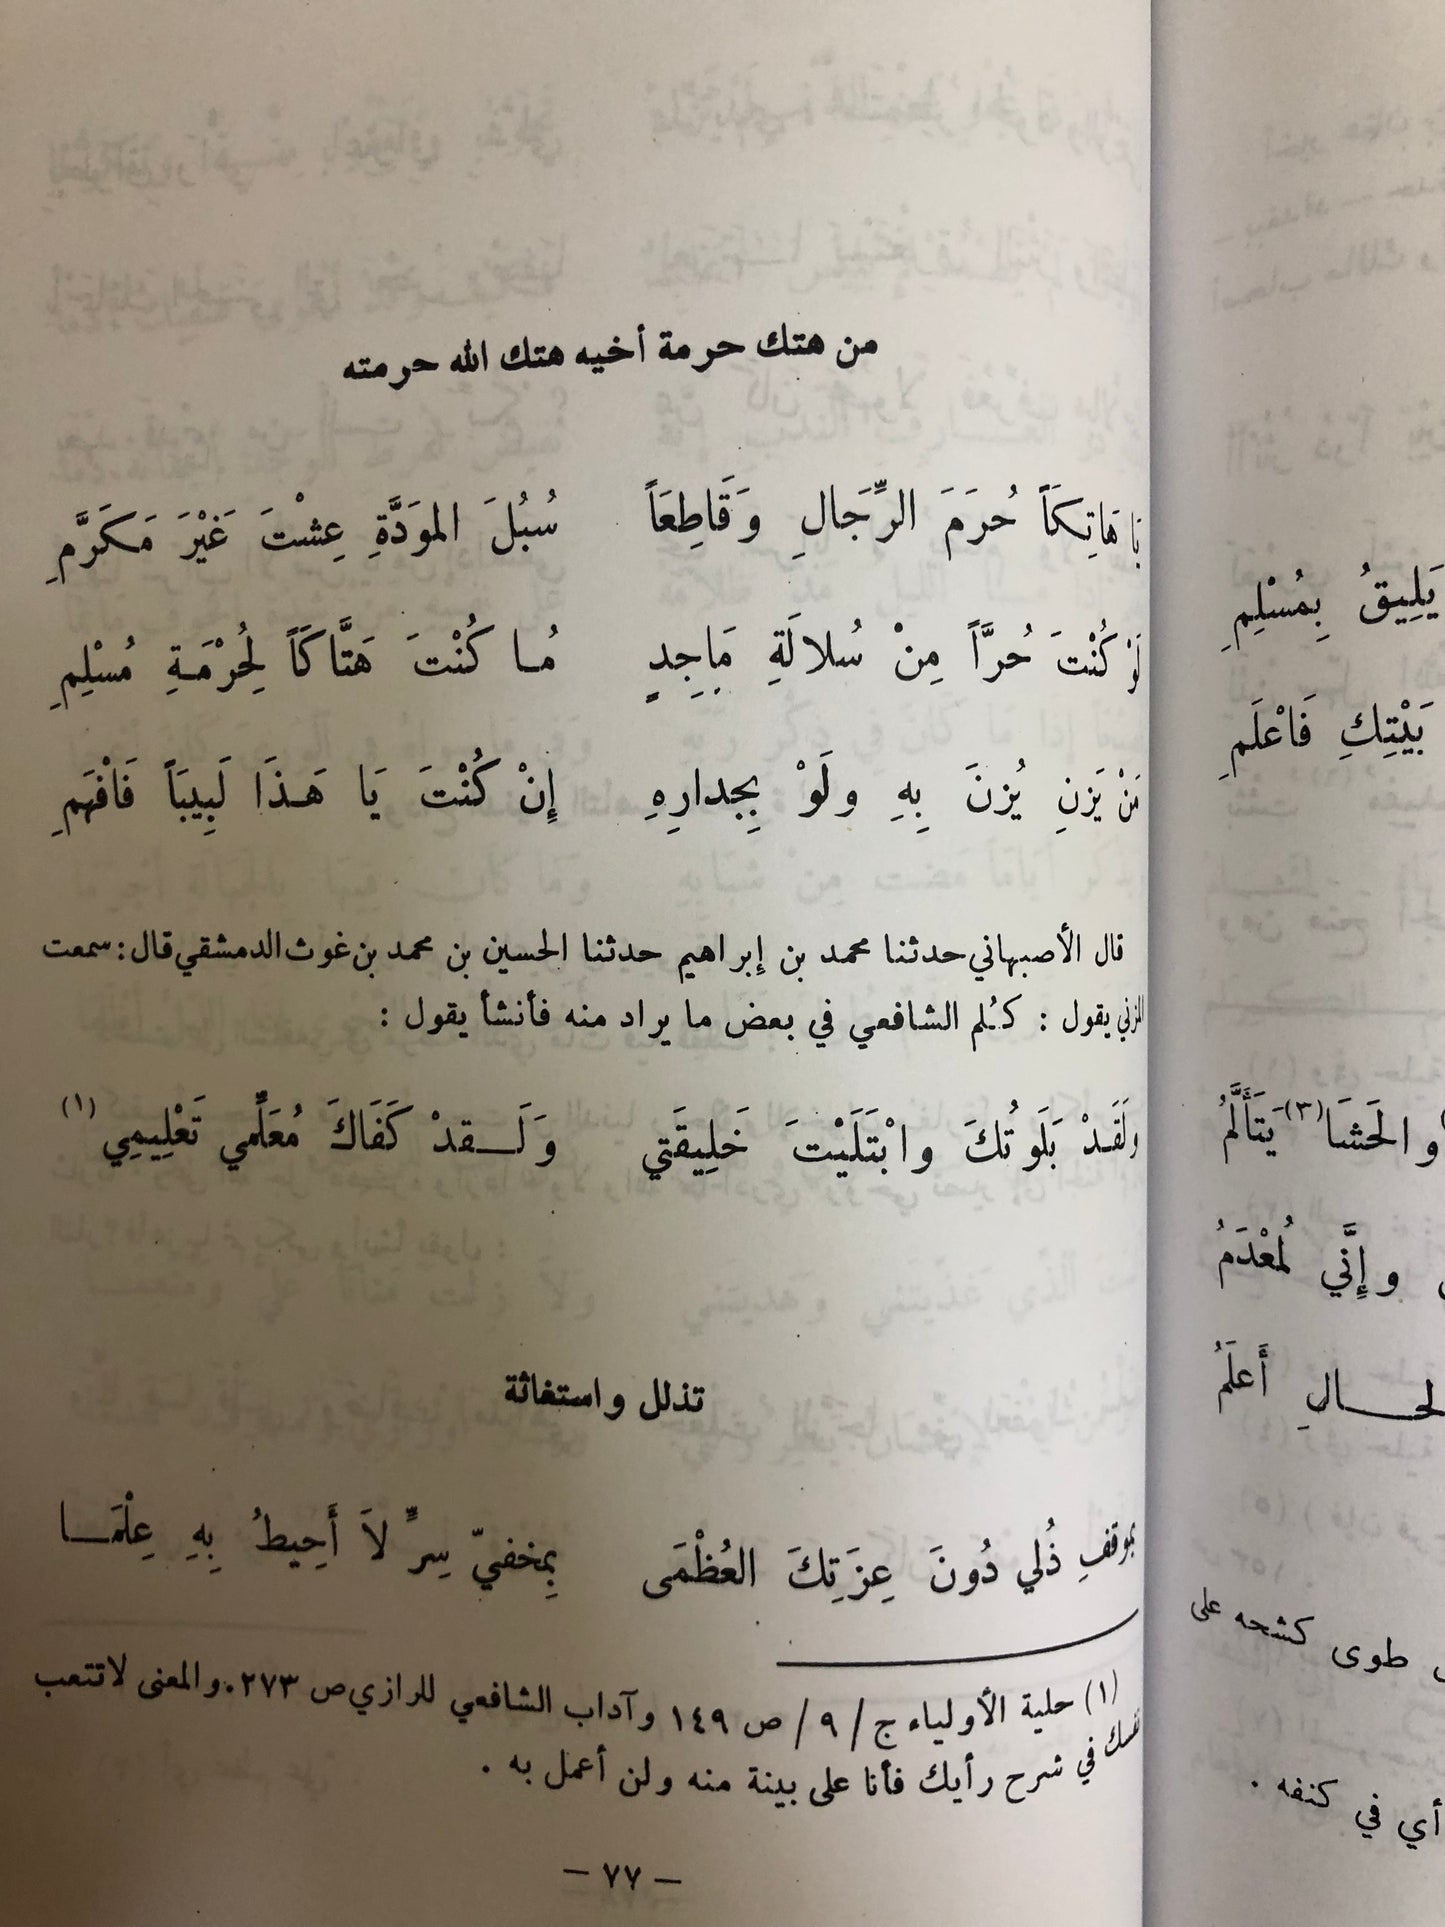 من هتك حرمة أخيه هتك الله حرمته
يَا هَاتِكَاً حُرَمَ الرِّجَالِ وَقَاطِعَاً سُبُلَ المَوَدَّةِ عِشْتَ غَيْرَ مَكَرَّمِ
لَوْ كُنْتَ حُرَّاً مِنْ سُلالَةِ مَاجِدٍ مُا كُنْتَ هَتَّاكَاً لِحُرْمَةِ مُسْلِمِ
مَنْ يَزنِ يُزنَ بِهِ ولَوْ بِجدارِهِ إِنْ كُنْتَ يَا هَذَا لَبِيبَاً فَافْهَمِ
قال الأصبهاني حدثنا محمد بن إبراهيم حدثنا الحسين بن محمد بن غوث الدمشقي قال: سمعت
المزني يقول : كُلم الشافعي في بعض ما يراد منه فأنشأ يقول :
ولَقَدْ بَلَوتُكَ وابْتَلَيْتَ خَلِيقَتي وَلَقدْ كَفَاكَ مُعَلِّمي تَعْلِيمِي (١)
تذلل واستغاثة
بموقفِ ذُلي دُونَ عِزَتِكَ العُظْمَى بِمخفيّ سِرٍّ لاَ أَحِيطُ بِهِ عِلْمَا
(١) حلية الأولياء ج / ٩ / ص ١٤٩ وآداب الشافعي للرازي ص ٢٧٣. والمعنى لا تتعب
نفسك في شرح رأيك فأنا على بينة منه ولن أعمل به .
- ٧٧ -
يَلِيقُ بِمُسْلِمِ
بَيْتِكِ فَاعْلَمِ
والحَشَا(٣) يَتَأَلَّمُ
وإنَّي لمُعْدَمُ
أَعلَمُ
طوى كشحه على
أي في كنفه .